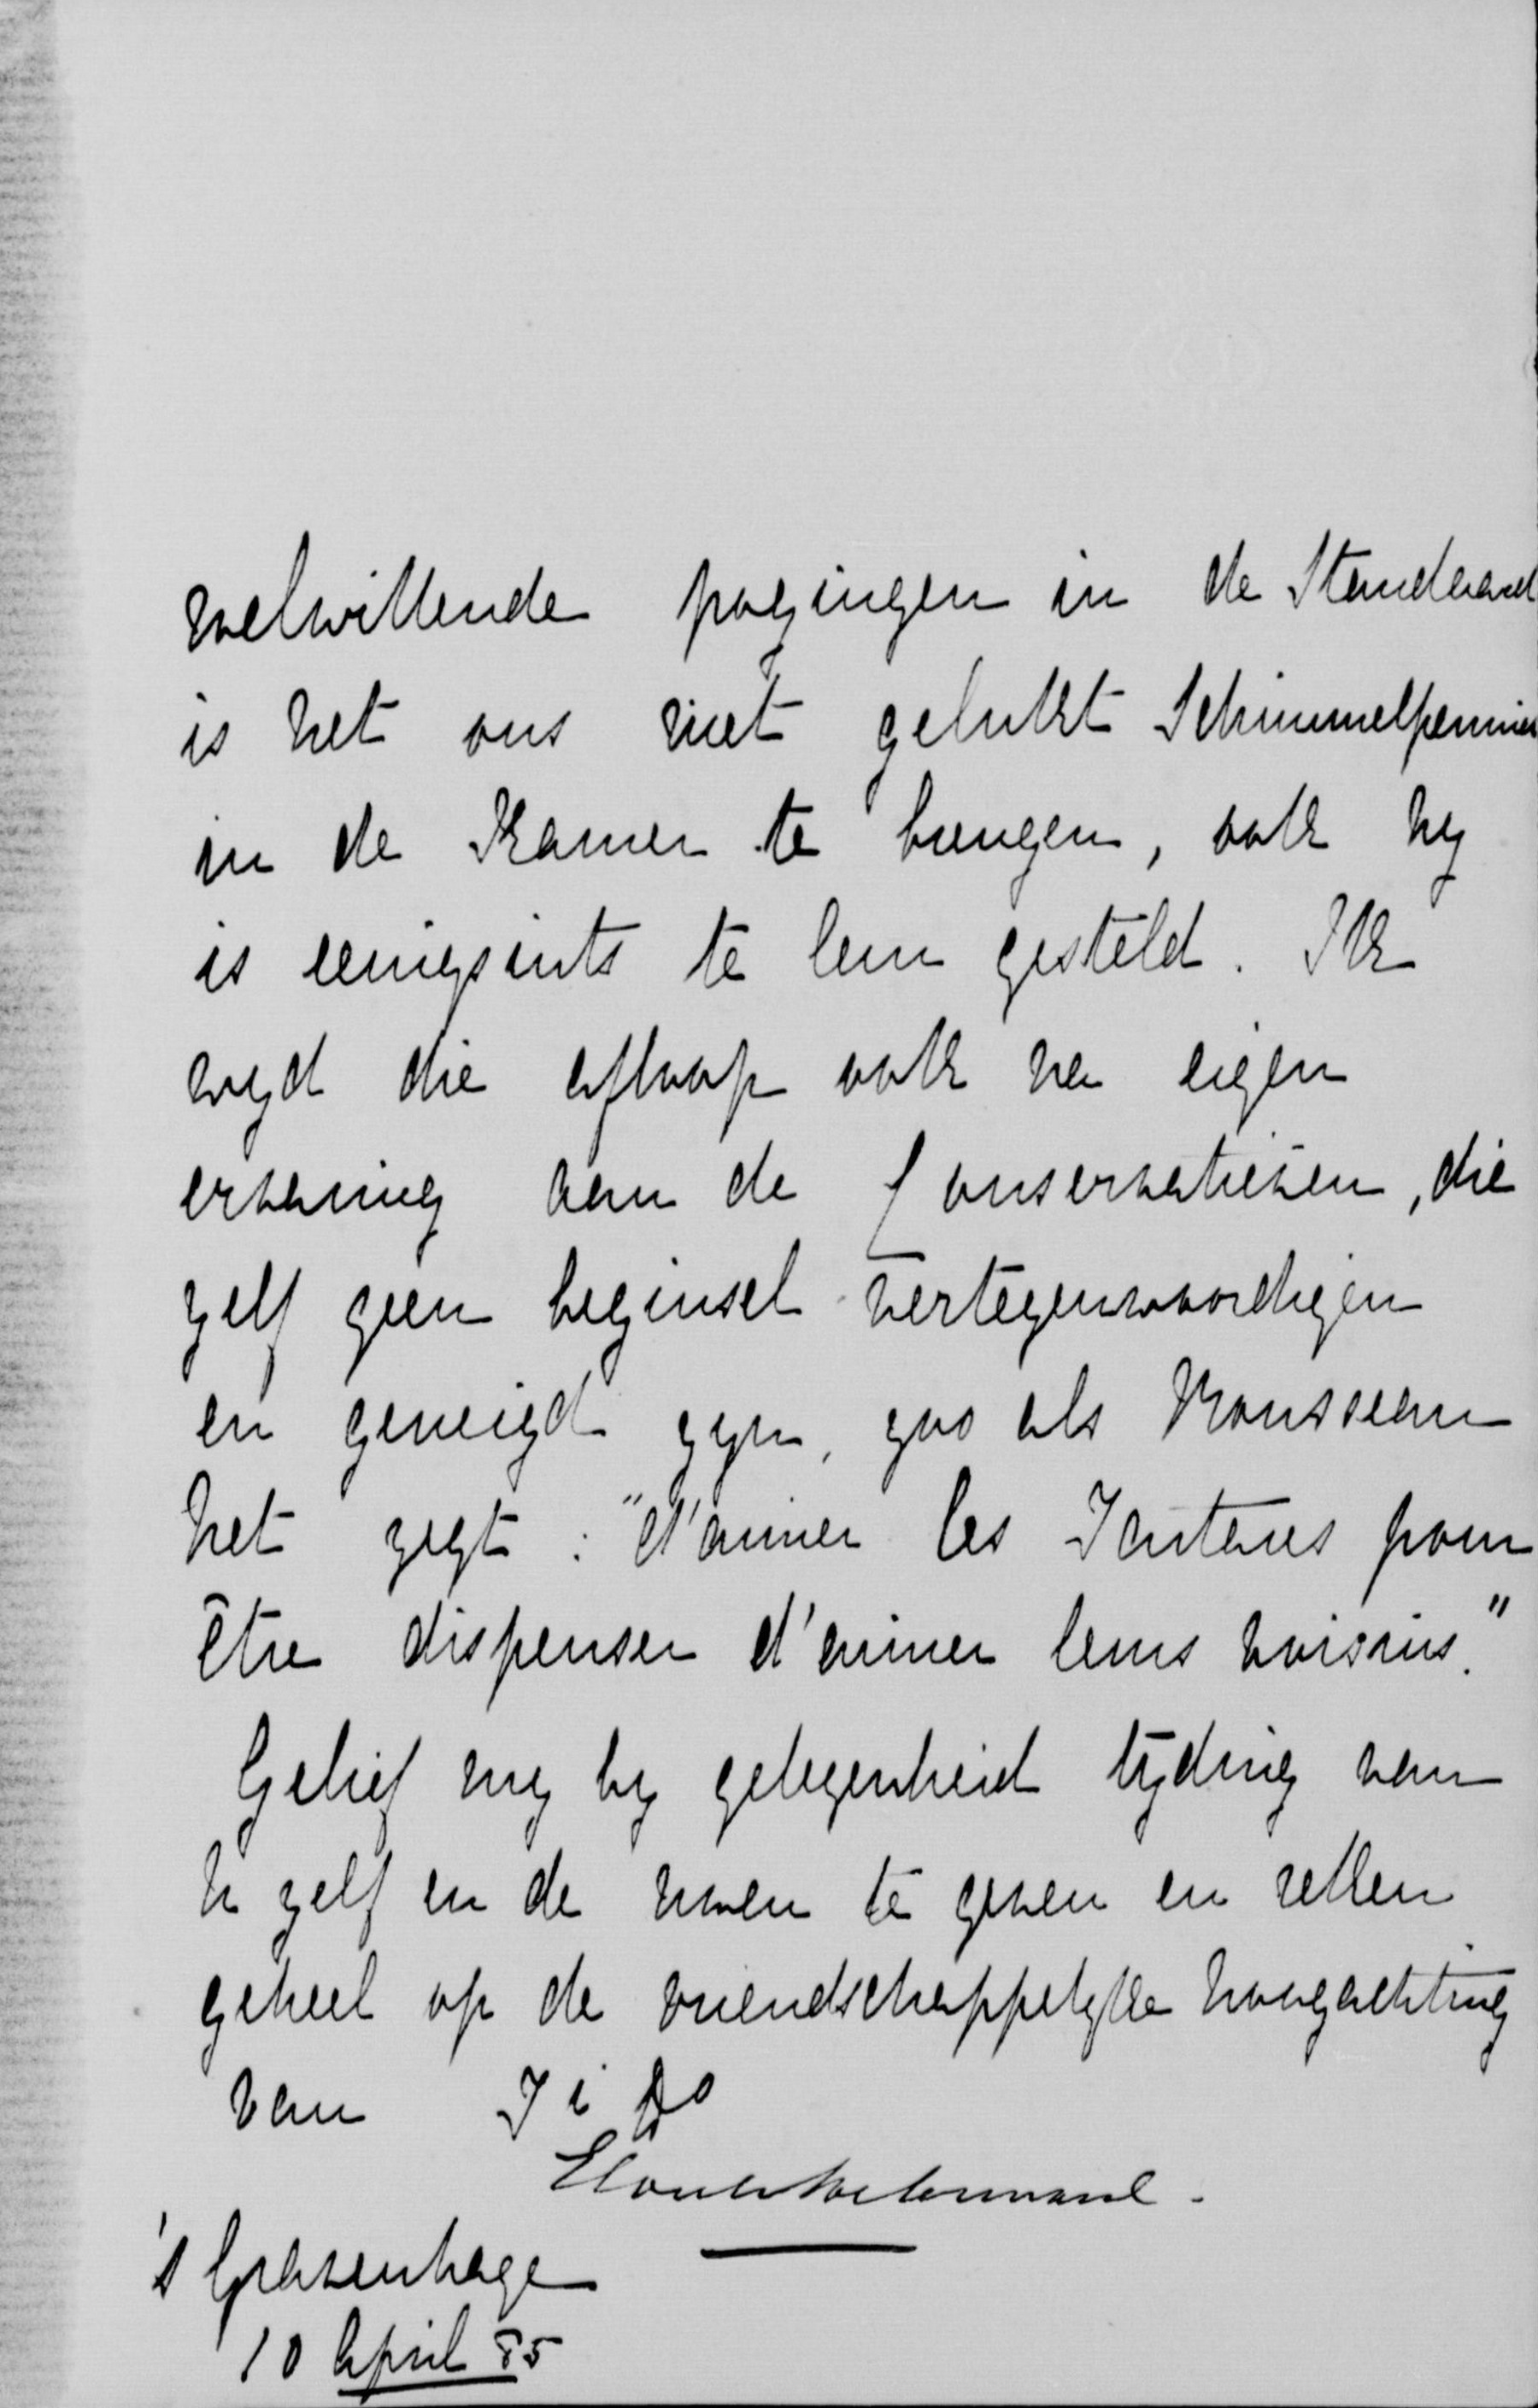 welwillende pogingen in de Standaard
is het ons niet gelukt Schimmelpennin
in de Kamer te brengen, ook hy
is eenigsints te leur gesteld. Ik
wyd die afloop ook na eigen
ervaring aan de Conservatieven, die
zelf geen beginsel vertegenwoordigen
en geneigd zyn, zoo als Rousseau
het zegt: "d'aimer les Tartares pour
être dispenser d'aimer leurs voisins."
Gelief my by gelegenheid tyding van
U zelf en de uwen te geven en reken
geheel op de vriendschappelyke hoogachting
van T i
Elout v Soeterwoude.
's Gravenhage
10 April 85